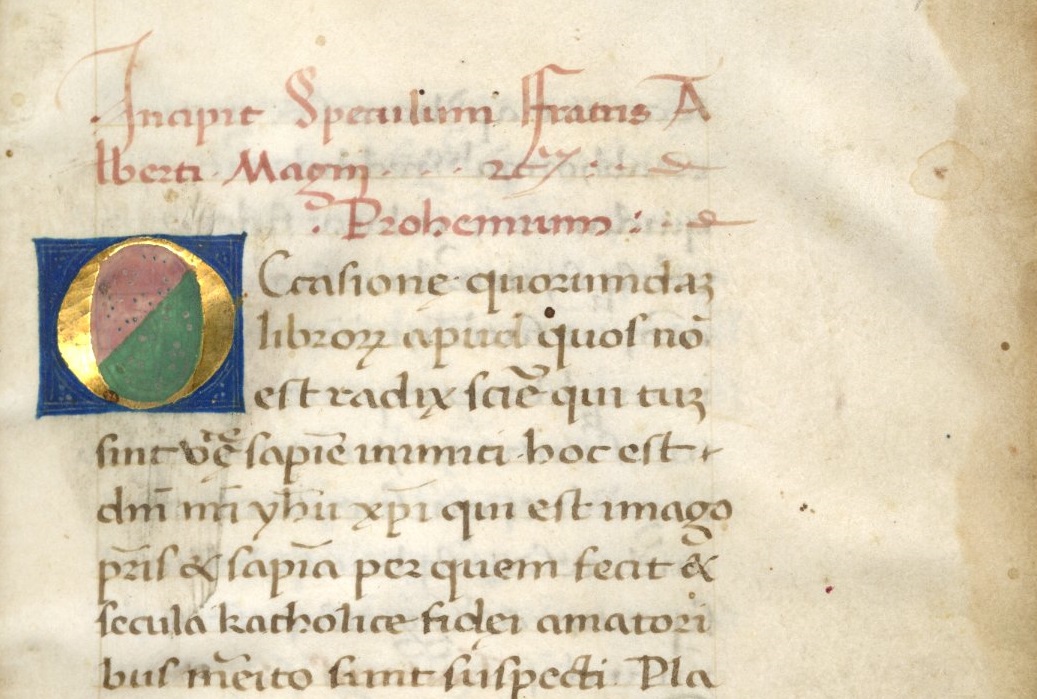 Incipit Speculum ffratris A
lberti Magni. . . . 2cꝫ. .
.Prohemium :
OCcasione quorumdaꝫ
libroꝝ apud quos nō
est radix sciē qui tuꝫ
sint ve͂ sapiē inimici hoc est
dn̄i nr̄i yhū xp̄i qui est imago
pr̄is & sapīa per quem fecit &
secula katholice fidei amatori
bus m̄eito sunt suspecti Pla